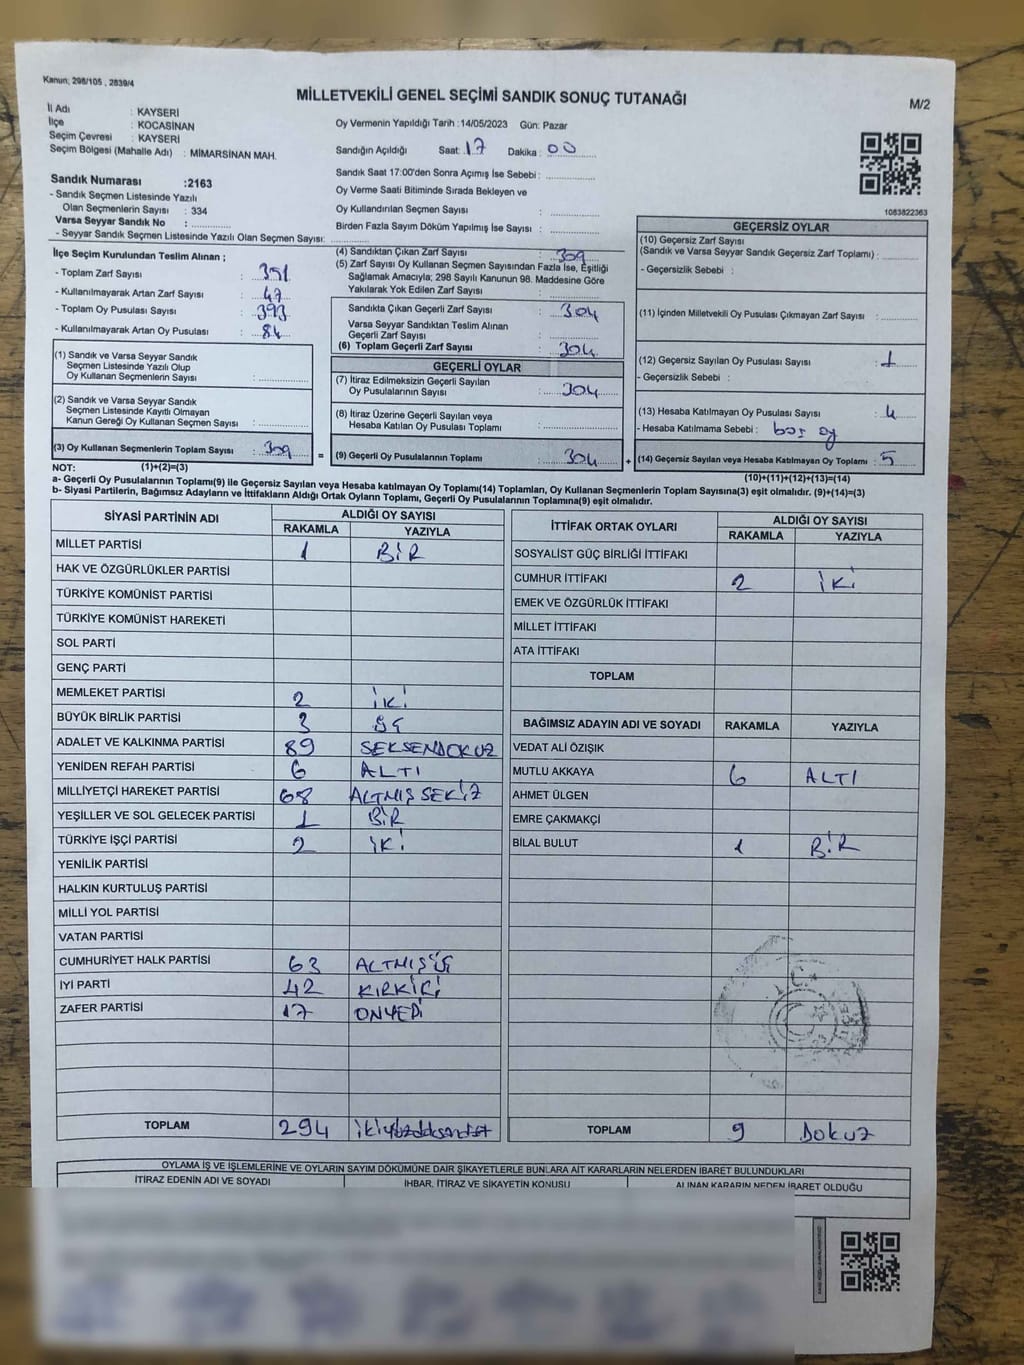 Kanun; 298/105 , 2839/4
MİLLETVEKİLİ GENEL SEÇİMİ SANDIK SONUÇ TUTANAĞI
M/2
İl Adı : KAYSERİ
İlçe : KOCASİNAN
Seçim Çevresi : KAYSERİ
Seçim Bölgesi (Mahalle Adı) : MİMARSİNAN MAH.
Oy Vermenin Yapıldığı Tarih :14/05/2023 Gün: Pazar
Sandığın Açıldığı Saat: 17 Dakika : 00
Sandık Saat 17:00'den Sonra Açımış İse Sebebi :
Oy Verme Saati Bitiminde Sırada Bekleyen ve
Oy Kullandırılan Seçmen Sayısı :
Birden Fazla Sayım Döküm Yapılmış İse Sayısı :
1083822363
Sandık Numarası :2163
- Sandık Seçmen Listesinde Yazılı
Olan Seçmenlerin Sayısı : 334
Varsa Seyyar Sandık No :
- Seyyar Sandık Seçmen Listesinde Yazılı Olan Seçmen Sayısı:
İlçe Seçim Kurulundan Teslim Alınan ;
- Toplam Zarf Sayısı : 351
- Kullanılmayarak Artan Zarf Sayısı : 47
- Toplam Oy Pusulası Sayısı : 393
- Kullanılmayarak Artan Oy Pusulası : 84
(1) Sandık ve Varsa Seyyar Sandık
Seçmen Listesinde Yazılı Olup
Oy Kullanan Seçmenlerin Sayısı :
(2) Sandık ve Varsa Seyyar Sandık
Seçmen Listesinde Kayıtlı Olmayan
Kanun Gereği Oy Kullanan Seçmen Sayısı :
(3) Oy Kullanan Seçmenlerin Toplam Sayısı : 309
(4) Sandıktan Çıkan Zarf Sayısı : 309
(5) Zarf Sayısı Oy Kullanan Seçmen Sayısından Fazla İse, Eşitliği
Sağlamak Amacıyla; 298 Sayılı Kanunun 98. Maddesine Göre
Yakılarak Yok Edilen Zarf Sayısı :
Sandıkta Çıkan Geçerli Zarf Sayısı : 304
Varsa Seyyar Sandıktan Teslim Alınan
Geçerli Zarf Sayısı :
(6) Toplam Geçerli Zarf Sayısı : 304
GEÇERLİ OYLAR
(7) İtiraz Edilmeksizin Geçerli Sayılan
Oy Pusulalarının Sayısı : 304
(8) İtiraz Üzerine Geçerli Sayılan veya
Hesaba Katılan Oy Pusulası Toplamı :
= (9) Geçerli Oy Pusulalarının Toplamı : 304
GEÇERSİZ OYLAR
(10) Geçersiz Zarf Sayısı
(Sandık ve Varsa Seyyar Sandık Geçersiz Zarf Toplamı) :
- Geçersizlik Sebebi :
(11) İçinden Milletvekili Oy Pusulası Çıkmayan Zarf Sayısı :
(12) Geçersiz Sayılan Oy Pusulası Sayısı : 1
- Geçersizlik Sebebi :
(13) Hesaba Katılmayan Oy Pusulası Sayısı : 4
- Hesaba Katılmama Sebebi : boş oy
+ (14) Geçersiz Sayılan veya Hesaba Katılmayan Oy Toplamı : 5
NOT: (1)+(2)=(3) (10)+(11)+(12)+(13)=(14)
a- Geçerli Oy Pusulalarının Toplamı(9) ile Geçersiz Sayılan veya Hesaba Katılmayan Oy Toplamı(14) Toplamları, Oy Kullanan Seçmenlerin Toplam Sayısına(3) eşit olmalıdır. (9)+(14)=(3)
b- Siyasi Partilerin, Bağımsız Adayların ve İttifakların Aldığı Ortak Oyların Toplamı, Geçerli Oy Pusulalarının Toplamına(9) eşit olmalıdır.
SİYASİ PARTİNİN ADI ALDIĞI OY SAYISI
RAKAMLA YAZIYLA
MİLLET PARTİSİ 1 BİR
HAK VE ÖZGÜRLÜKLER PARTİSİ
TÜRKİYE KOMÜNİST PARTİSİ
TÜRKİYE KOMÜNİST HAREKETİ
SOL PARTİ
GENÇ PARTİ
MEMLEKET PARTİSİ 2 İKİ
BÜYÜK BİRLİK PARTİSİ 3 ÜÇ
ADALET VE KALKINMA PARTİSİ 89 SEKSENDOKUZ
YENİDEN REFAH PARTİSİ 6 ALTI
MİLLİYETÇİ HAREKET PARTİSİ 68 ALTMIŞ SEKİZ
YEŞİLLER VE SOL GELECEK PARTİSİ 1 BİR
TÜRKİYE İŞÇİ PARTİSİ 2 İKİ
YENİLİK PARTİSİ
HALKIN KURTULUŞ PARTİSİ
MİLLİ YOL PARTİSİ
VATAN PARTİSİ
CUMHURİYET HALK PARTİSİ 63 ALTMIŞÜÇ
İYİ PARTİ 42 KIRKİKİ
ZAFER PARTİSİ 17 ONYEDİ
TOPLAM 294 ikiyüzdoksandört
İTTİFAK ORTAK OYLARI ALDIĞI OY SAYISI
RAKAMLA YAZIYLA
SOSYALİST GÜÇ BİRLİĞİ İTTİFAKI
CUMHUR İTTİFAKI 2 İKİ
EMEK VE ÖZGÜRLÜK İTTİFAKI
MİLLET İTTİFAKI
ATA İTTİFAKI
TOPLAM
BAĞIMSIZ ADAYIN ADI VE SOYADI RAKAMLA YAZIYLA
VEDAT ALİ ÖZIŞIK
MUTLU AKKAYA 6 ALTI
AHMET ÜLGEN
EMRE ÇAKMAKÇİ
BİLAL BULUT 1 BİR
T.C.
TOPLAM 9 DOKUZ
OYLAMA İŞ VE İŞLEMLERİNE VE OYLARIN SAYIM DÖKÜMÜNE DAİR ŞİKAYETLERLE BUNLARA AİT KARARLARIN NELERDEN İBARET BULUNDUKLARI
İTİRAZ EDENİN ADI VE SOYADI İHBAR, İTİRAZ VE ŞİKAYETİN KONUSU ALINAN KARARIN NEDEN İBARET OLDUĞU